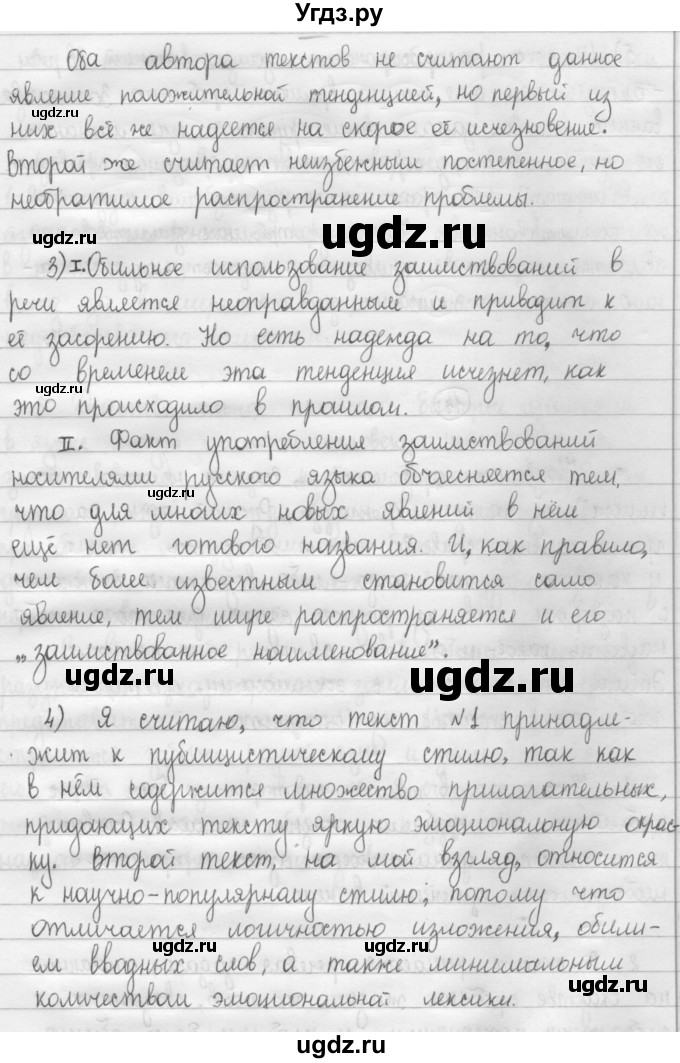 Угдз.ру
Оба автора текстов не считают данное
явление положительной тенденцией, но первый из
них всё же надеется на скорое её исчезновение.
ugdz.ru
Второй же считает неизбежным постепенное, но
необратимое распространение проблемы.
ugdz.ru
ugdz.ru
3) I. Обильное использование заимствований в
речи является неоправданным и приводит к
её засорению. Но есть надежда на то, что
со временем эта тенденция исчезнет, как
ugdz.ru
это происходило в прошлом.
ugdz.ru
II. Факт употребления заимствований
носителями русского языка объясняется тем,
ugdz.ru
что для многих новых явлений в нём
ещё нет готового названия. И, как правило,
чем более известным становится само
явление, тем шире распространяется и его
„заимствованное наименование".
ugdz.ru
ugdz.ru
4) Я считаю, что текст №1 принадле-
жит к публицистическому стилю, так как
в нём содержится множество прилагательных,
ugdz.ru
придающих тексту яркую эмоциональную окрас-
ку. Второй текст, на мой взгляд, относится
к научно-популярному стилю, потому что
отличается логичностью изложения, обили-
ugdz.ru
ем вводных слов, а также минимальным
ugdz.ru
количеством эмоциональной лексики.
ugdz.ru